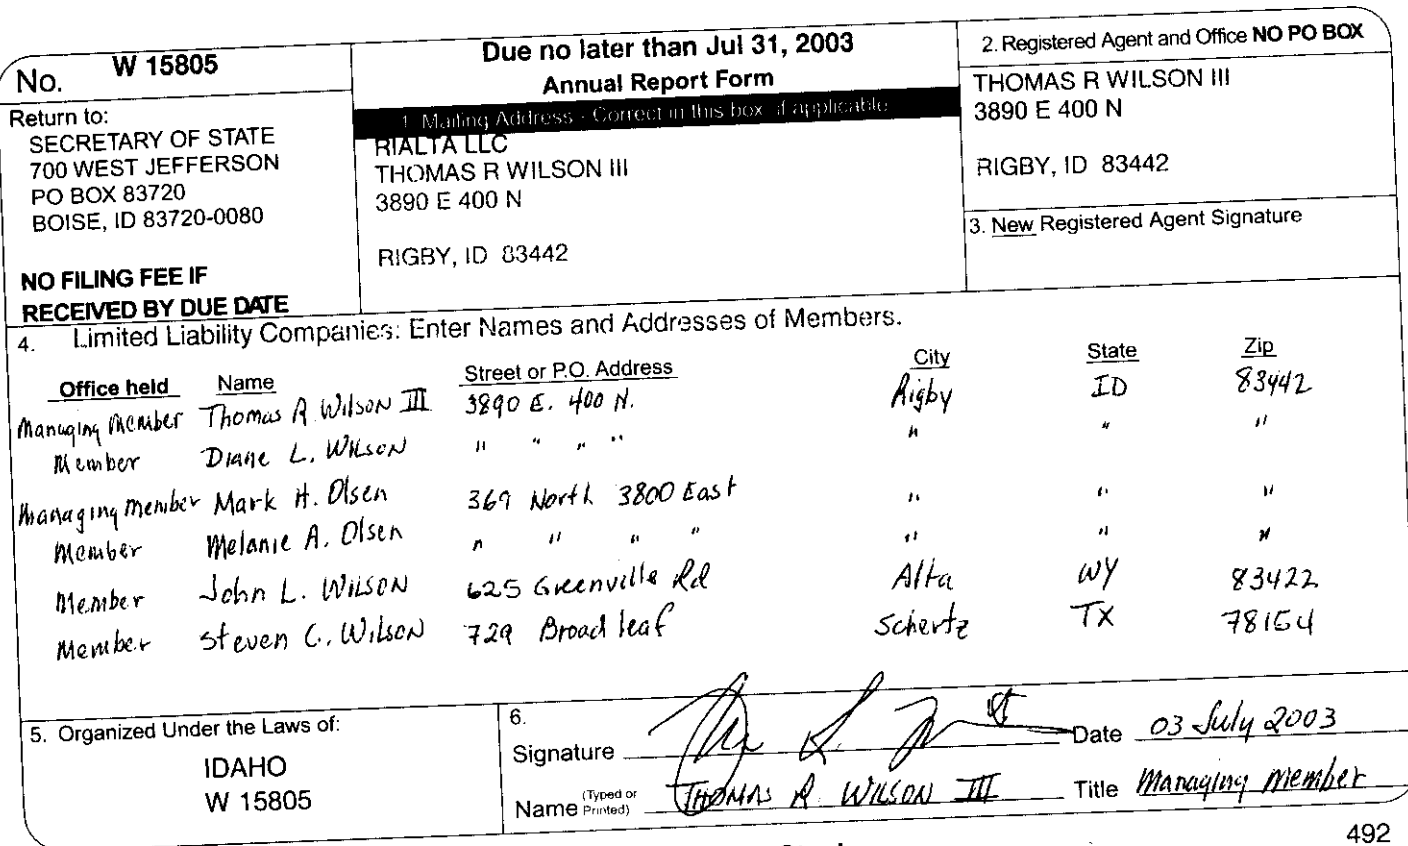 No. W 15805
Return to:
SECRETARY OF STATE
700 WEST JEFFERSON
PO BOX 83720
BOISE, ID 83720-0080
NO FILING FEE IF
RECEIVED BY DUE DATE
Due no later than Jul 31, 2003
Annual Report Form
1. Mailing Address - Correct in this box if applicable
RIALTA LLC
THOMAS R WILSON III
3890 E 400 N
RIGBY, ID 83442
2. Registered Agent and Office NO PO BOX
THOMAS R WILSON III
3890 E 400 N
RIGBY, ID 83442
3. New Registered Agent Signature
4. Limited Liability Companies: Enter Names and Addresses of Members.
Office held Name Street or P.O. Address City State Zip
Managing Member Thomas R Wilson III 3890 E. 400 N. Rigby ID 83442
Member Diane L. Wilson " " " " " " "
Managing Member Mark H. Olsen 369 North 3800 East " " "
Member Melanie A. Olsen " " " " " " "
Member John L. Wilson 625 Greenville Rd Alta WY 83422
Member Steven C. Wilson 729 Broadleaf Schertz TX 78154
5. Organized Under the Laws of:
IDAHO
W 15805
6.
Signature Date 03 July 2003
Name (Typed or Printed) THOMAS R. WILSON III Title Managing Member
492